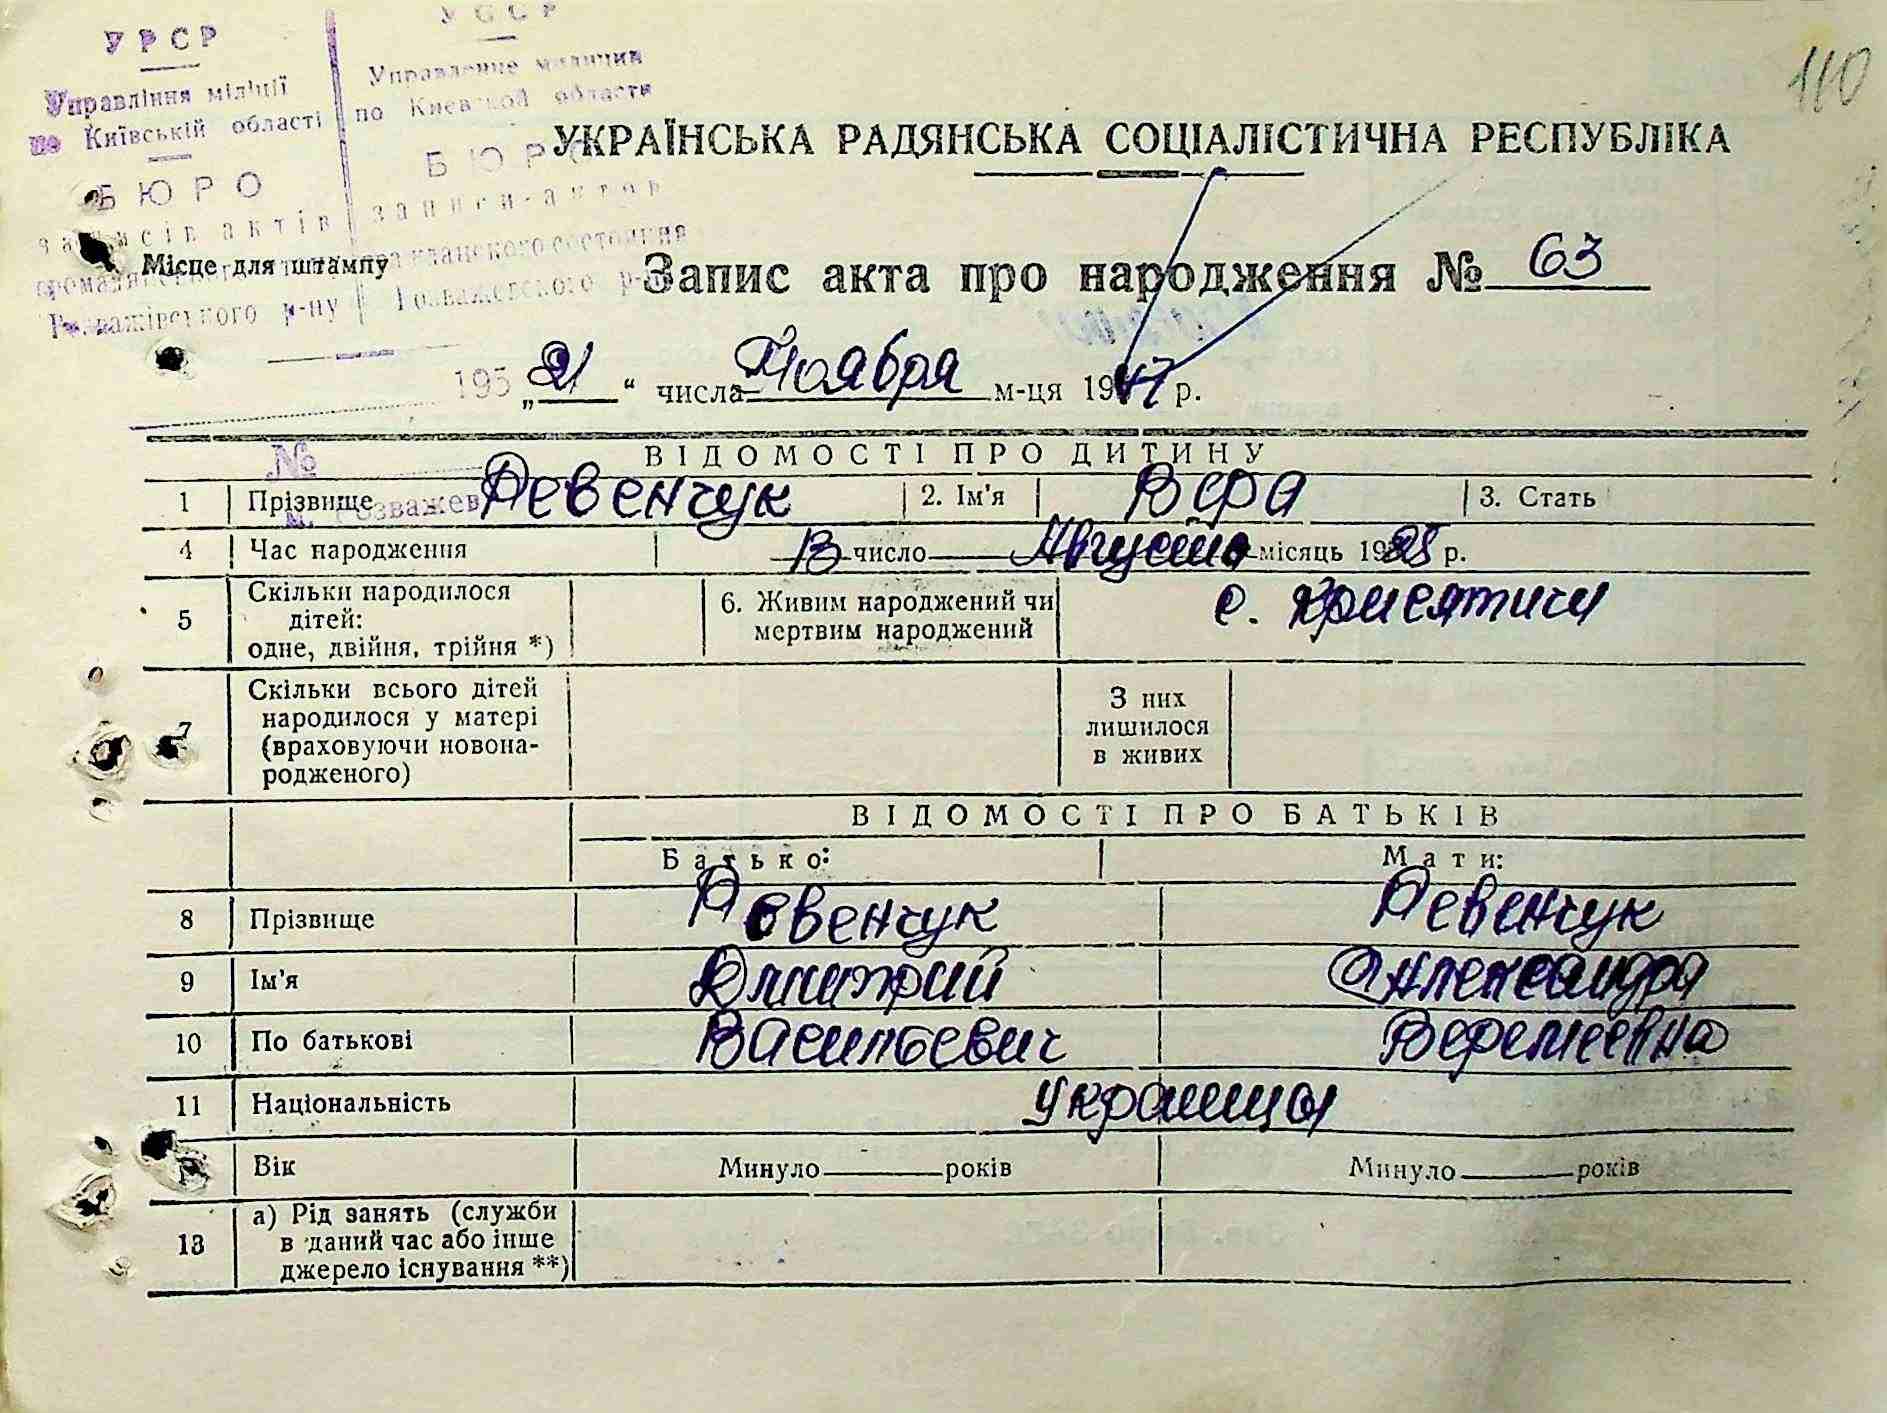 110
УРСР
УССР
Управління міліції
Управление милиции
по Київській області
по Киевской области
БЮРО
БЮРО
записів актів
записи актов
гражданского состояния
Розважівського р-ну
Розважевского р-
УКРАЇНСЬКА РАДЯНСЬКА СОЦІАЛІСТИЧНА РЕСПУБЛІКА
Місце для штампу
Запис акта про народження № 63
195
„21“ числа Ноября м-ця 1947 р.
№
м. Розважев
ВІДОМОСТІ ПРО ДИТИНУ
1 Прізвище Ревенчук 2. Ім'я Вера 3. Стать
4 Час народження 13 число Августа місяць 1925 р.
5 Скільки народилося дітей: одне, двійня, трійня *) 6. Живим народжений чи мертвим народжений с. Крисятичи
7 Скільки всього дітей народилося у матері (враховуючи новонародженого) З них лишилося в живих
ВІДОМОСТІ ПРО БАТЬКІВ
Батько: Мати:
8 Прізвище Ревенчук Ревенчук
9 Ім'я Дмитрий Александра
10 По батькові Васильевич Веремеевна
11 Національність украинцы
Вік Минуло років Минуло років
13 а) Рід занять (служби в даний час або інше джерело існування **)